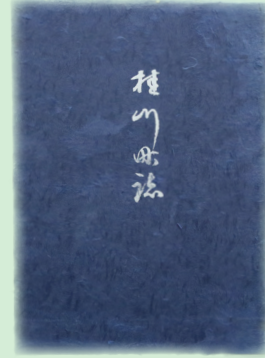 桂川町誌